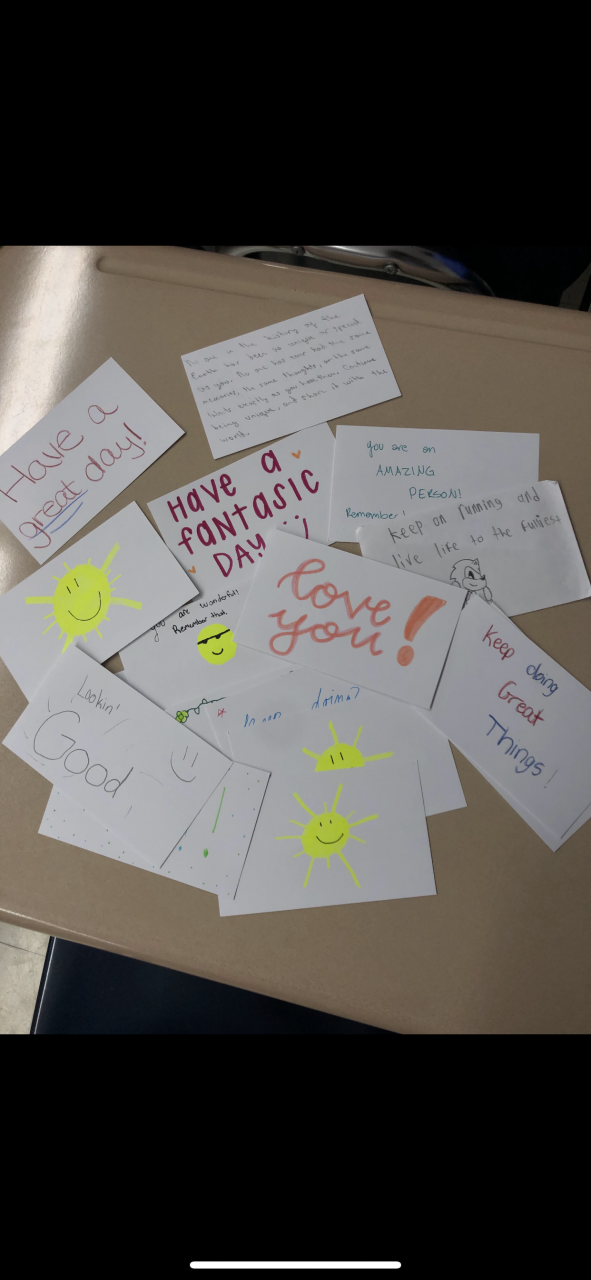 No one in the history of the
Earth has been as unique or special
as you. No one has ever had the same
memories, the same thoughts, or the same
exactly as you have them. Continue
being unique, and share it with the
world.
Have a
great day!
HAVE a
fantasic
DAY :)
you are on
AMAZING
PERSON!
Remember!
Keep on running and
live life to the fulliest
you are wonderful!
Remember that.
love
you!
Keep doing
Great
Things!
Lookin'
Good